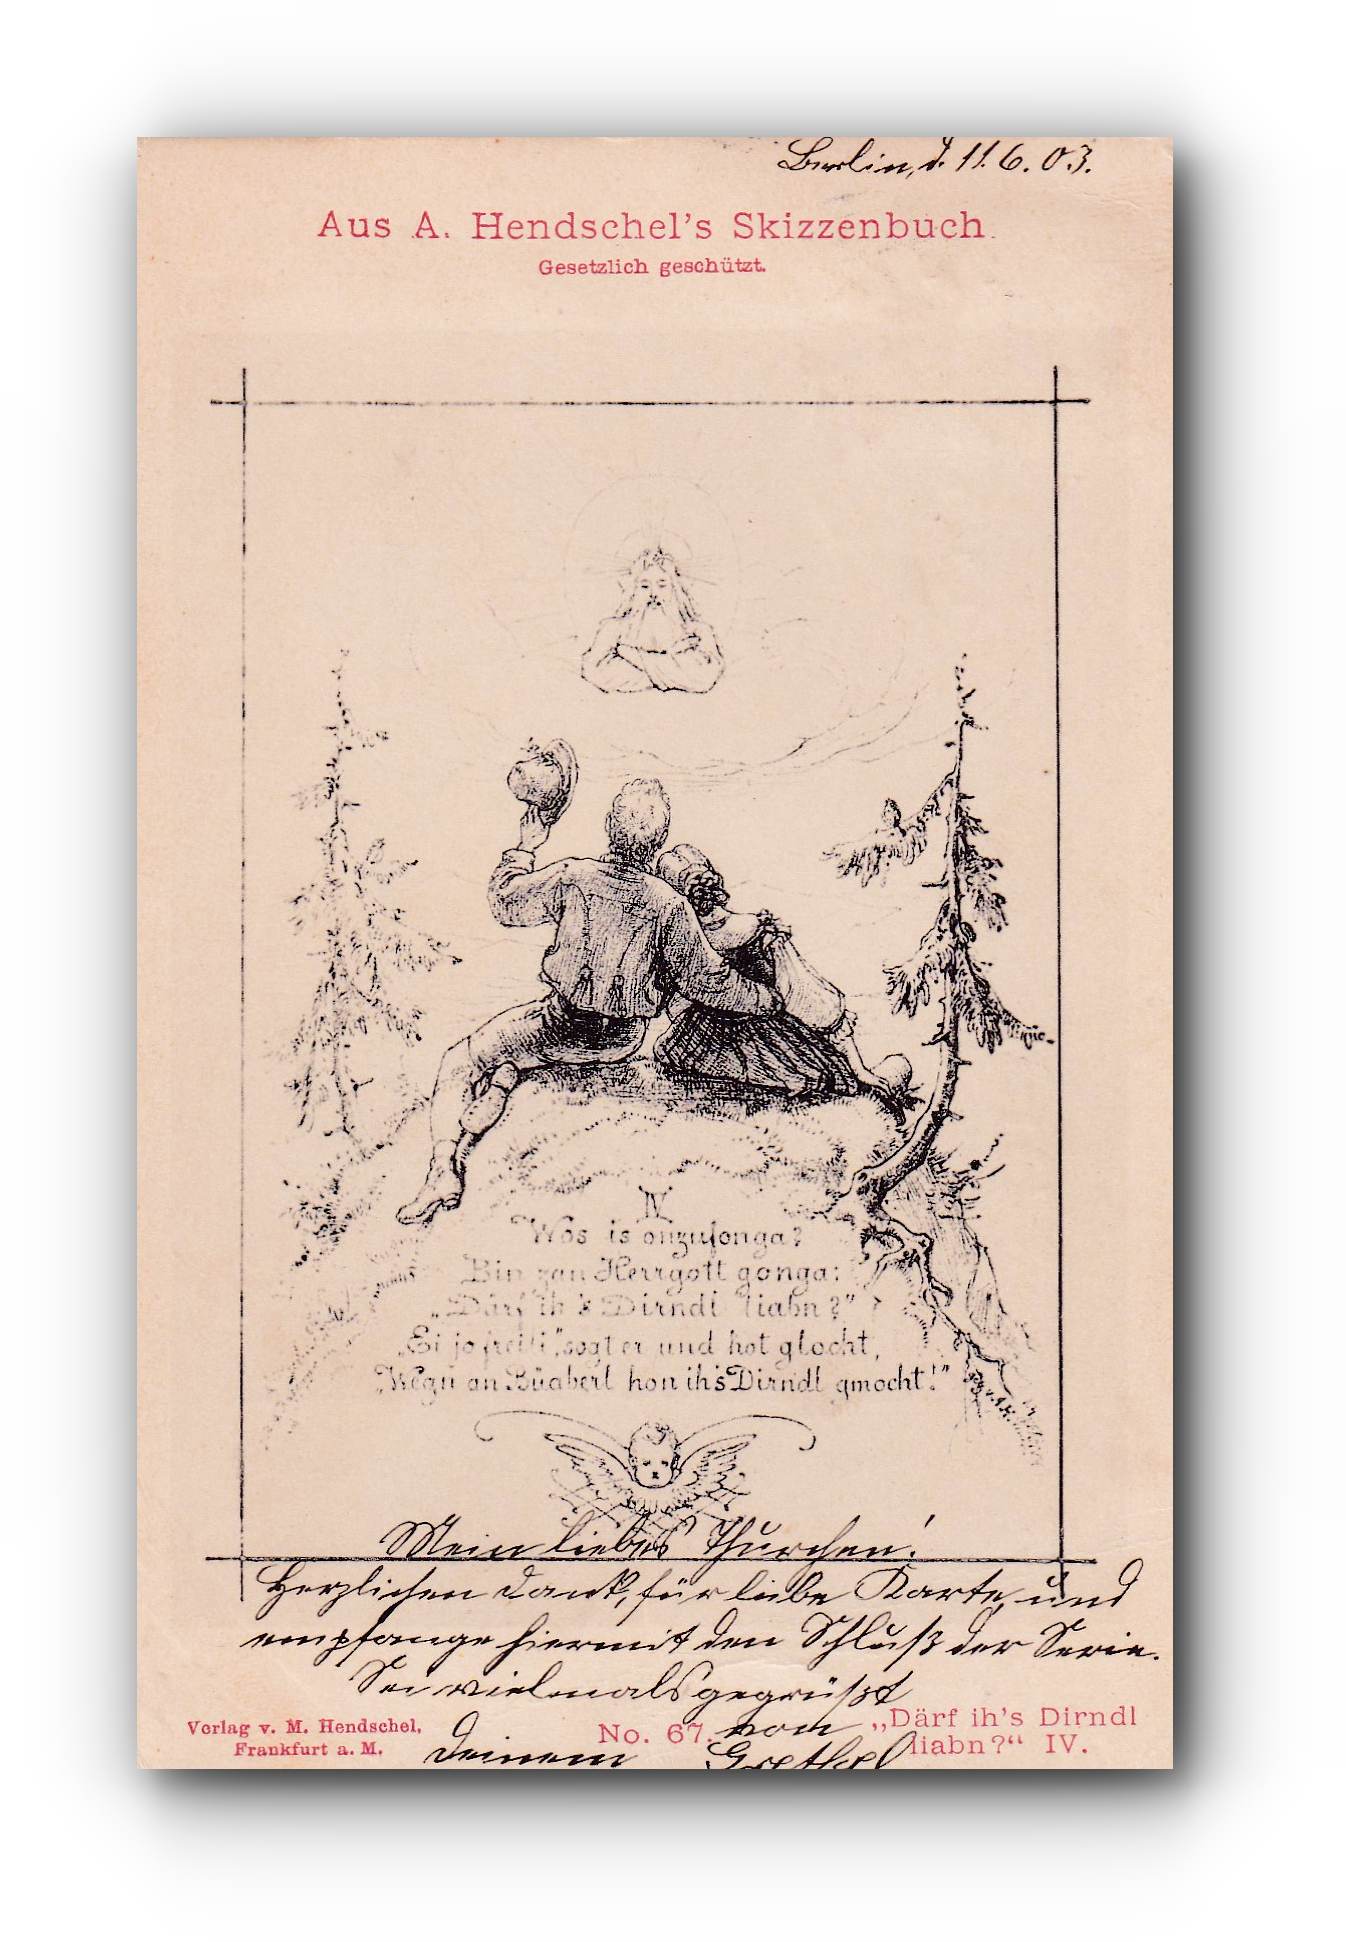 Berlin, d. 11.6.03.
Aus A. Hendschel's Skizzenbuch.
Gesetzlich geschützt.
IV
Wos is onzufonga?
Bin zan Herrgott gonga:
„Därf ih's Dirndl liabn?"
„Ei jo freili", sogt er und hot glocht,
„Wegn an Büaberl hon ih's Dirndl gmocht!"
Mein liebes Thurchen!
Herzlichen Dank, für liebe Karte, und
empfange hiermit den Schluß der Serie.
Sei vielmals gegrüßt
von
deinem Grethel
Verlag v. M. Hendschel,
Frankfurt a. M.
No. 67.
„Därf ih's Dirndl
liabn?“ IV.